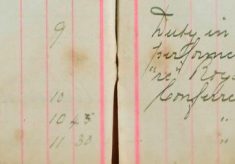 9
10
10 45
11 30
Duty in
performance
"re" Roy
Conferre
"
"